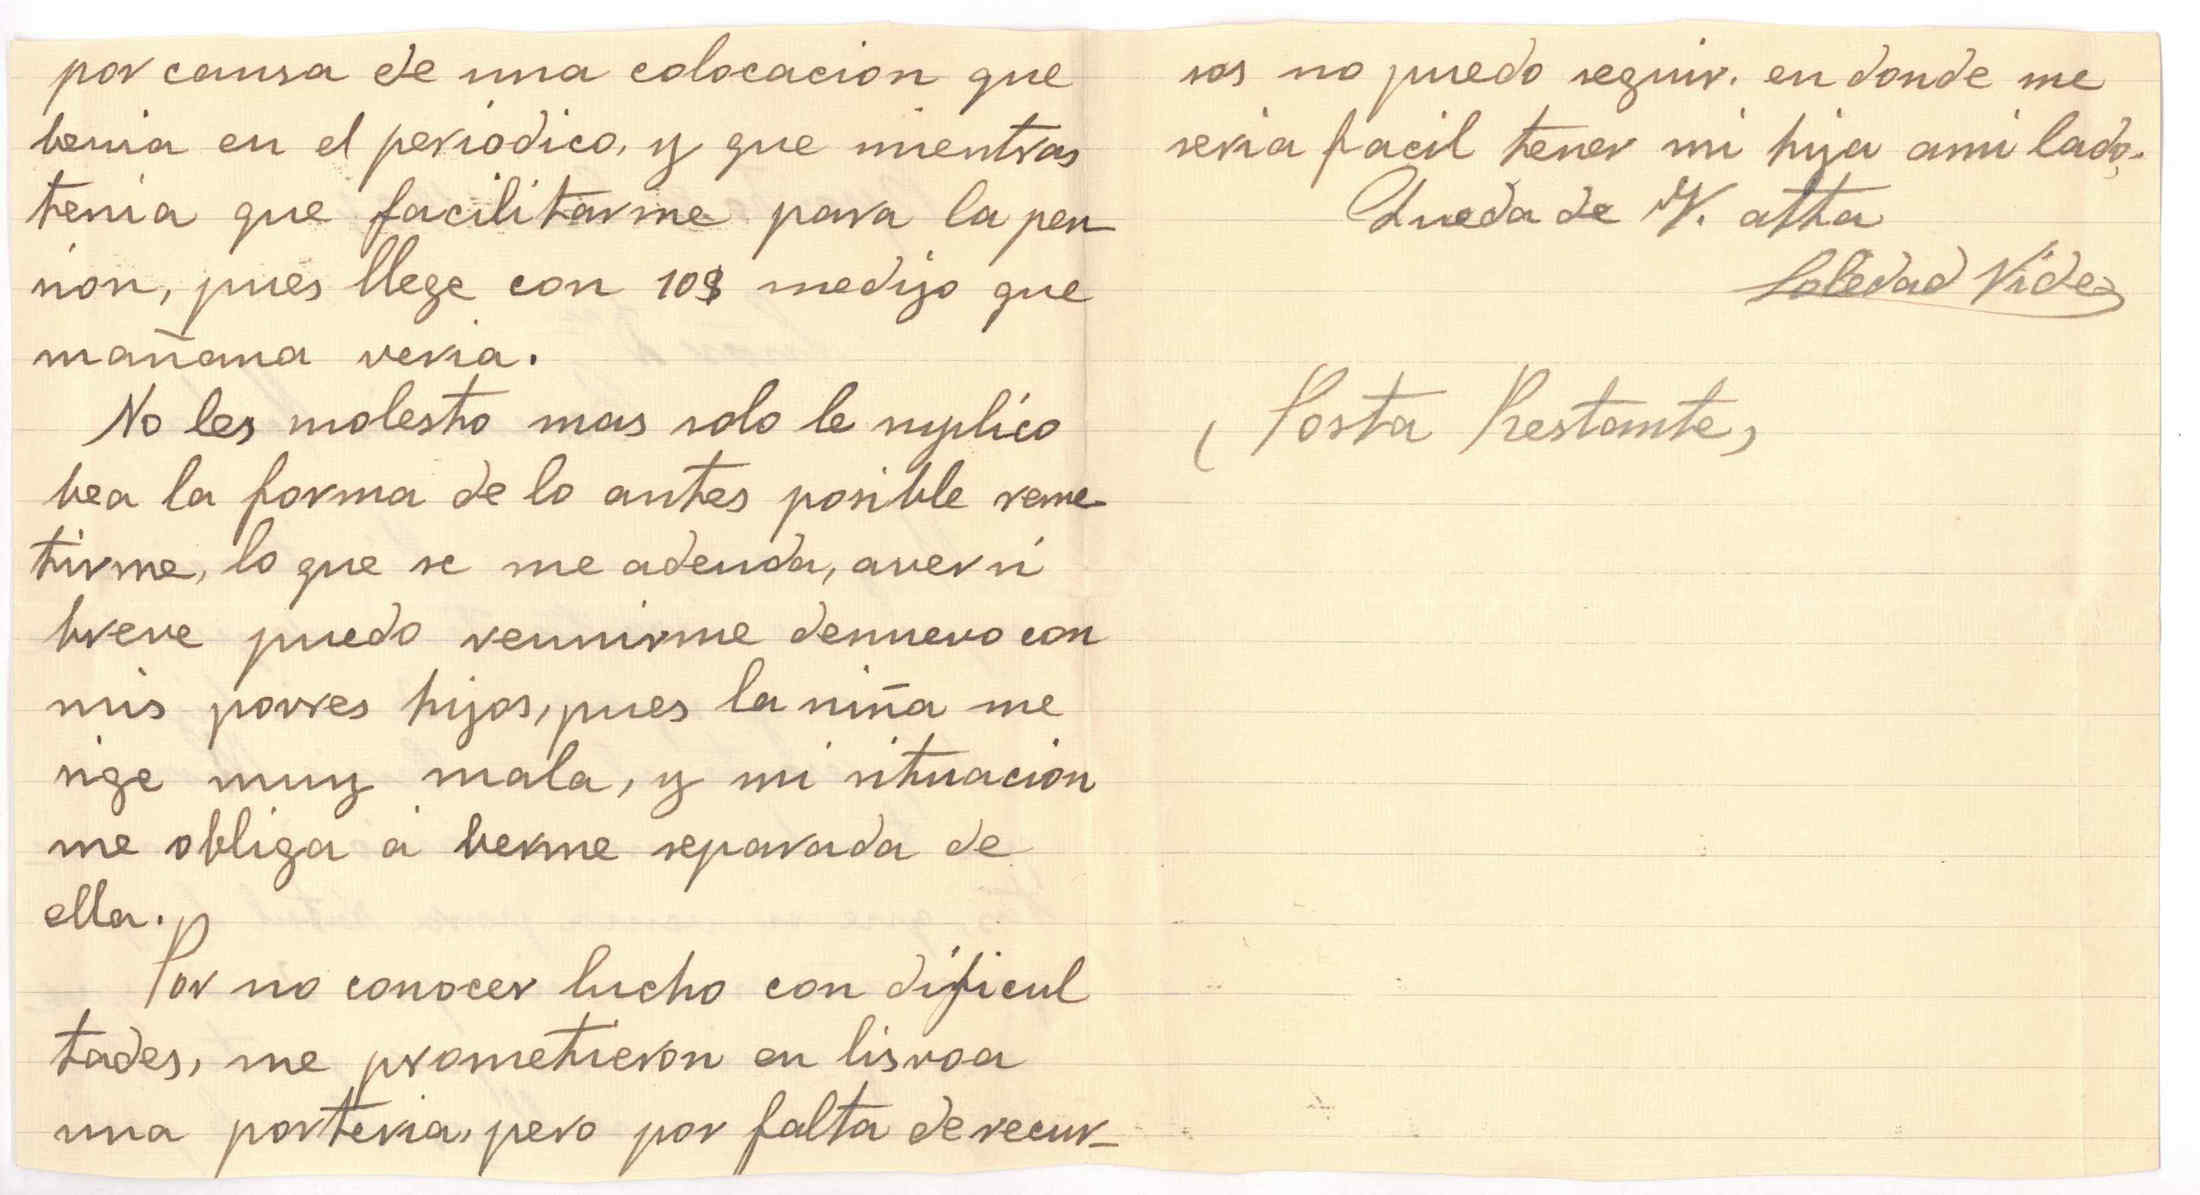 por causa de una colocacion que
benia en el periodico, y que mientras
tenia que facilitarme para la pen
sion, pues llege con 10$ medijo que
mañana veria.
No les molesto mas solo le suplico
bea la forma de lo antes posible reme-
tirme, lo que se me adeuda, aver si
breve puedo reunirme denuevo con
mis povres hijos, pues la niña me
sige muy mala, y mi situacion
me obliga á berme separada de
ella.
Por no conocer lucho con dificul
tades, me prometieron en lisvoa
una porteria, pero por falta de recur-
sos no puedo seguir. en donde me
seria facil tener mi hija ami lado.
Queda de V. atta
Soledad Videz
(Posta Restante)